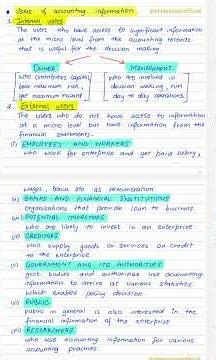 Users of accounting information
1. Internal users
The users who have access to significant information
at the micro level from the accounting records
that is useful for the decision making.
OWNER MANAGEMENT
who contributes capital, who are involved in
bear maximum risk, decision making, run
get maximum reward day to day operations.
2. External users
The users who do not have access to information
at a micro level but have information from the
financial statements.
(i) EMPLOYEES AND WORKERS
who work for enterprise and get paid salary,
wages, bonus etc as remuneration.
(ii) BANKS AND FINANCIAL INSTITUTIONS
organisations that provide loan to business
(iii) POTENTIAL INVESTORS
who are likely to invest in an enterprise.
(iv) CREDITORS
who supply goods or services on credit
to the enterprise
(v) GOVERNMENT AND ITS AUTHORITIES
govt bodies and authorities use accounting
information to arrive at various statistics
which enables policy decision
(vi) PUBLIC
public in general is also interested in the
financial information of the enterprise
(vii) RESEARCHERS
who use accounting information for various
accounting practices